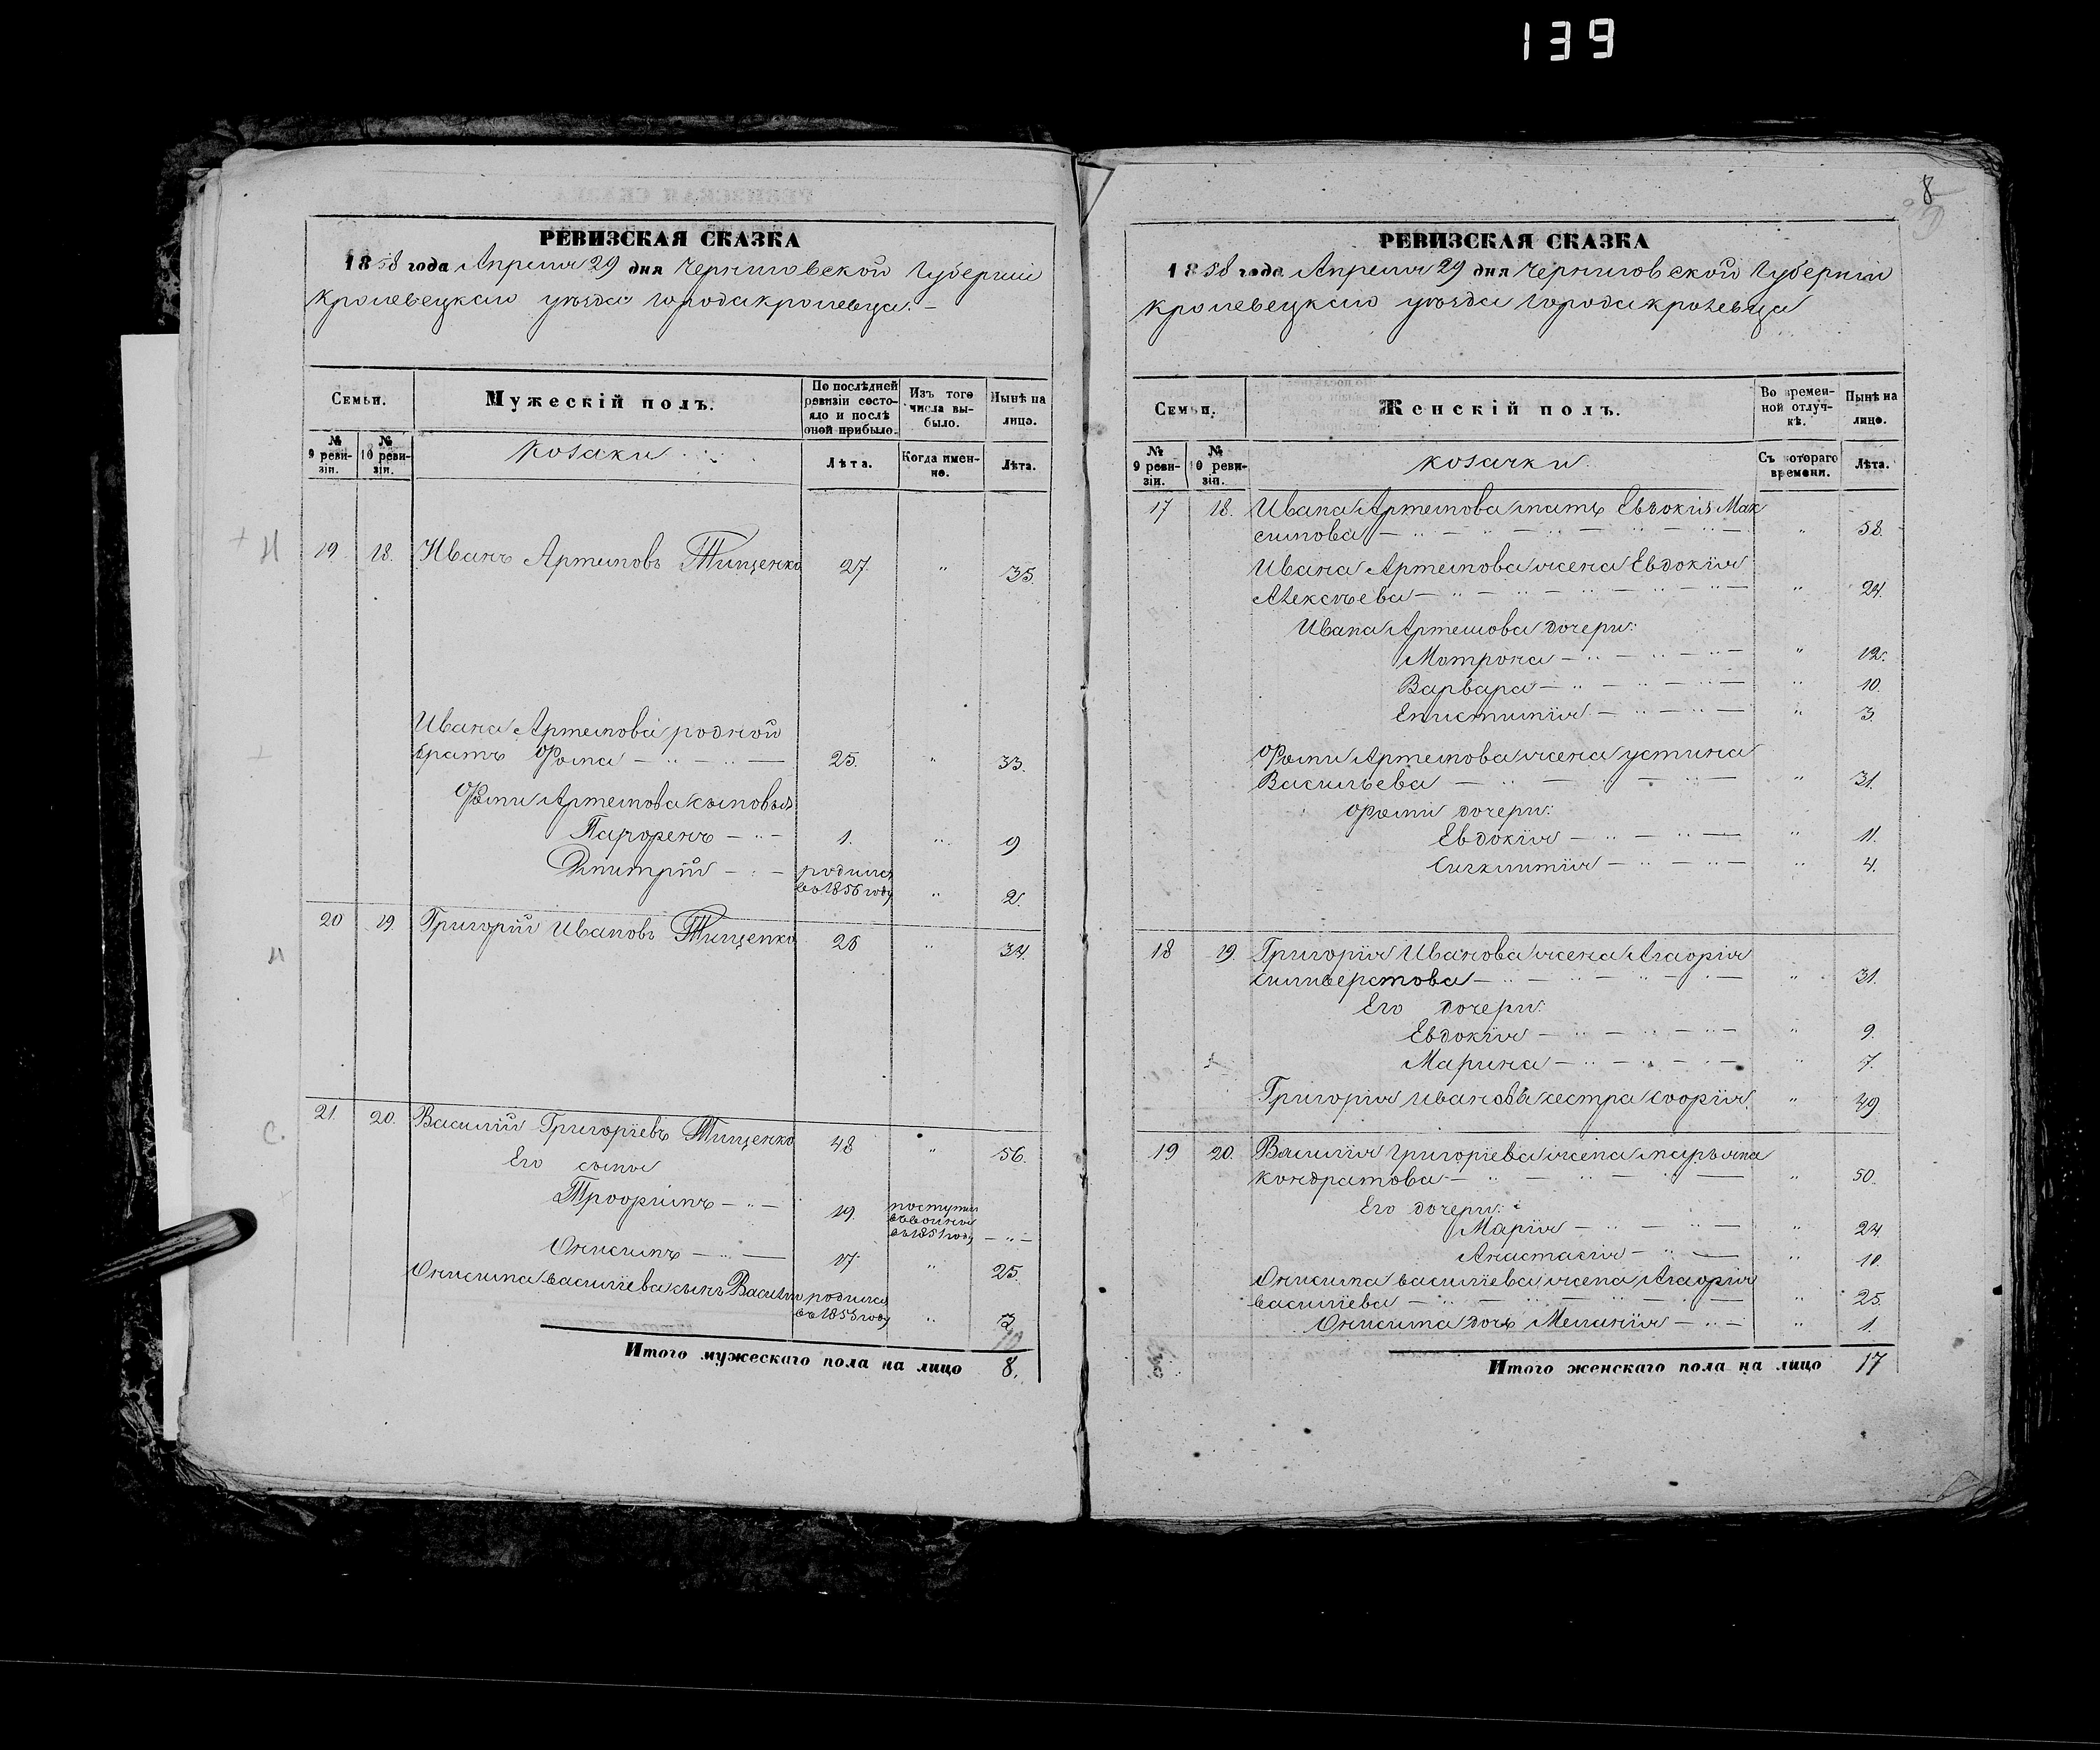 139
8
РЕВИЗСКАЯ СКАЗКА
1858 года Апреля 29 дня Черниговской Губернии
Кролевецкаго уѣзда Города Кролевца. —
Семьи.
Мужескій полъ.
По послѣдней ревизіи состояло и послѣ оной прибыло.
Изъ того числа выбыло.
Нынѣ на лицо.
№ 9 ревизіи.
№ 10 ревизіи.
Козаки
Лѣта.
Когда именно.
Лѣта.
19. 18. Иванъ Артемовъ Тищенко 27 " 35.
Ивана Артемова родной
братъ Фома — " — " — 25. " 33.
Фомы Артемова сыновья
Парфенъ — " — 1. " 9
Дмитрій — " — родился въ 1856 году " 2.
20 19. Григорій Ивановъ Тищенко 26 " 34.
21. 20. Василій Григоріевъ Тищенко 48 " 56.
Его сыны
Трофимъ — " — 19. поступил въ воины в 1851 году — " —
Онисимъ — " — 17. " 25.
Онисима Василіева сынъ Василий родился въ 1853 году "
Итого мужескаго пола на лицо 8.
РЕВИЗСКАЯ СКАЗКА
1858 года Апреля 29 дня Черниговской Губерніи
Кролевецкаго уѣзда Города Кролевца
Семьи.
Женскій полъ.
Во временной отлучкѣ.
Нынѣ на лицо.
№ 9 ревизіи.
№ 10 ревизіи.
Козачки.
Съ котораго времени.
Лѣта.
17 18. Ивана Артемова мать Евдокія Мак
симова — " — " — " — " 58.
Ивана Артемова жена Евдокія
Алексѣева — " — " — " — " 24.
Ивана Артемова дочери:
Мотрона — " — " — " 12.
Варвара — " — " — " 10.
Епистимія — " — " — " 3.
Фомы Артемова жена Устина
Васильева — " — " — " 31.
Фомы дочери:
Евдокія — " — " — " 11.
Сигклитія — " — " — " 4.
18 19. Григорія Иванова жена Агафія
Сильверстова — " — " — " 31.
Его дочери:
Евдокія — " — " — " 9.
Марина — " — " — " 7.
Григорія Иванова сестра Софія. "
19 20. Василія Григоріева жена Марьяна
Кондратова — " — " — " 50.
Его дочери:
Марія — " — " — " 24
Анастасія — " — " 10.
Онисима Василіева жена Агафія
Василіева — " — " — " 25.
Онисима дочь Меланія — " — " 1.
Итого женскаго пола на лицо 17